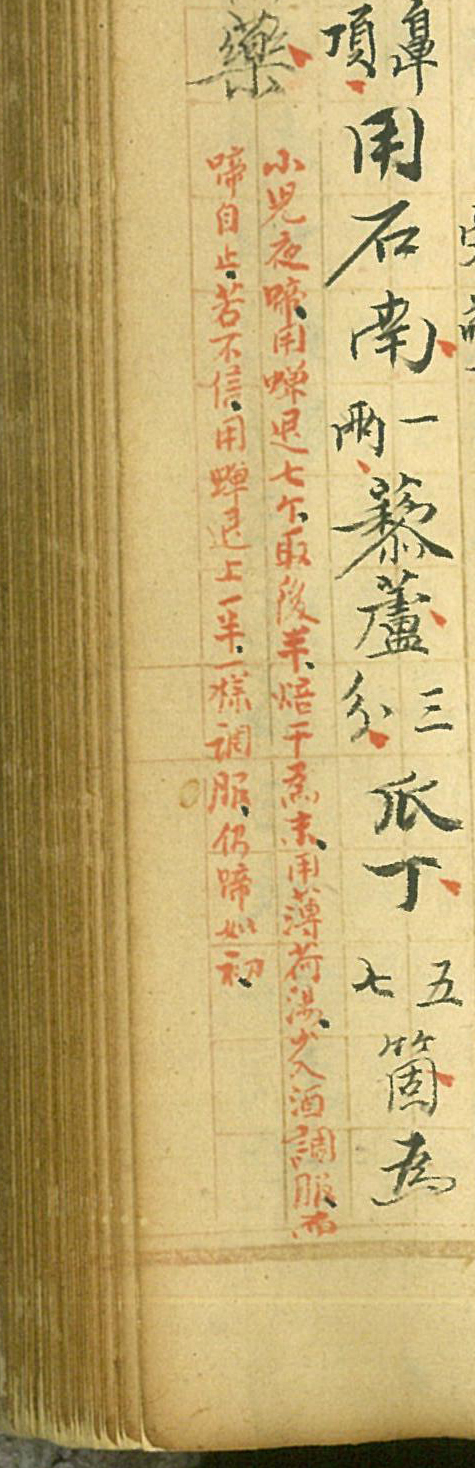 鼻項用石南一兩藜蘆三分瓜丁五七箇為
藥
小児夜啼用蟬退七个取後半焙干為末用薄荷湯少入酒調服而
啼自止若不信用蟬退上一半一樣調服仍啼如初